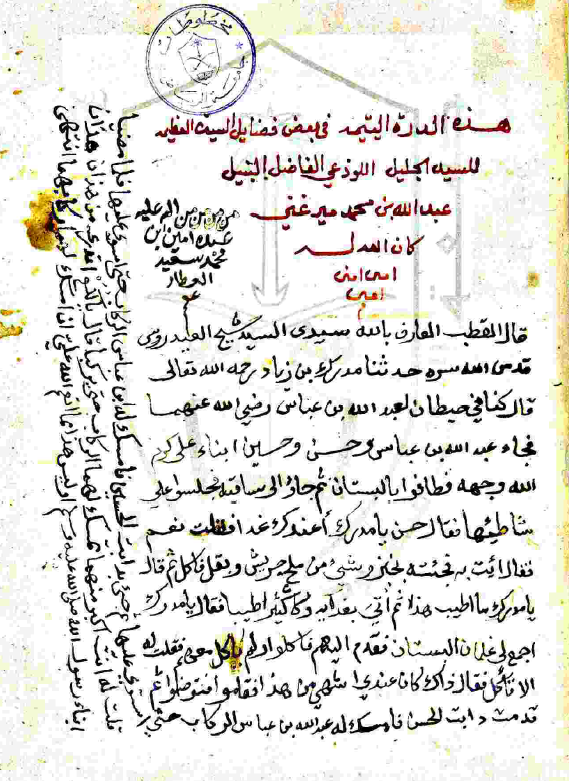 هذه الدرة اليتيمه في بعض فضايل السيدة العظيمه
للسيد الجليل اللوذعي الفاضل النبيل
عبدالله بن محمد ميرغني
كان الله له
امين امين
امين
من من من الله عليه
عبده امين ابن
محمد سعيد
العطار
قال القطب العارف بالله سيدي السيد شيخ العيدروس
قدس الله سره حدثنا مدرك بن زياد رحمه الله تعالى
قال كنا في حيطان لعبد الله بن عباس رضي الله عنهما
فجاء عبد الله بن عباس وحسن وحسين ابناء علي كرم
الله وجهه فطافوا بالبستان ثم جاؤ الى ساقيه فجلسوا على
شاطئها فقال حسن يا مدرك أعندك غدا فقلت نعم
فقال ائت به فجئته بخبز وشيئ من ملح جريش وبقل فاكل ثم قال
يا مدرك ما اطيب هذا ثم أتي بغدايه وكان كثير اطيبا فقال يا مدرك
اجمع لي غلمان البستان فقدم اليهم فاكلوا ولم يأكل معهم فقلت له
الا تأكل فقال ذاك كان عندي اشهى من هذا فقاموا فتوضوا ثم
قدمت دابت الحسن فامسك له عبدالله بن عباس الركاب حتى
استوى عليها ثم جئ بدابت الحسين فامسك له ابن عباس الركاب حتى استوى عليها فلما مضيا
قلت له انت اكبر منهما تمسك لهما الركاب حتى يركبا فقال يا لكع اتدري من هذان هذان
ابناء رسول الله صلى الله عليه وسلم او ليس هذا مما انعم الله علي ان امسك لهما ركابهما انتهى